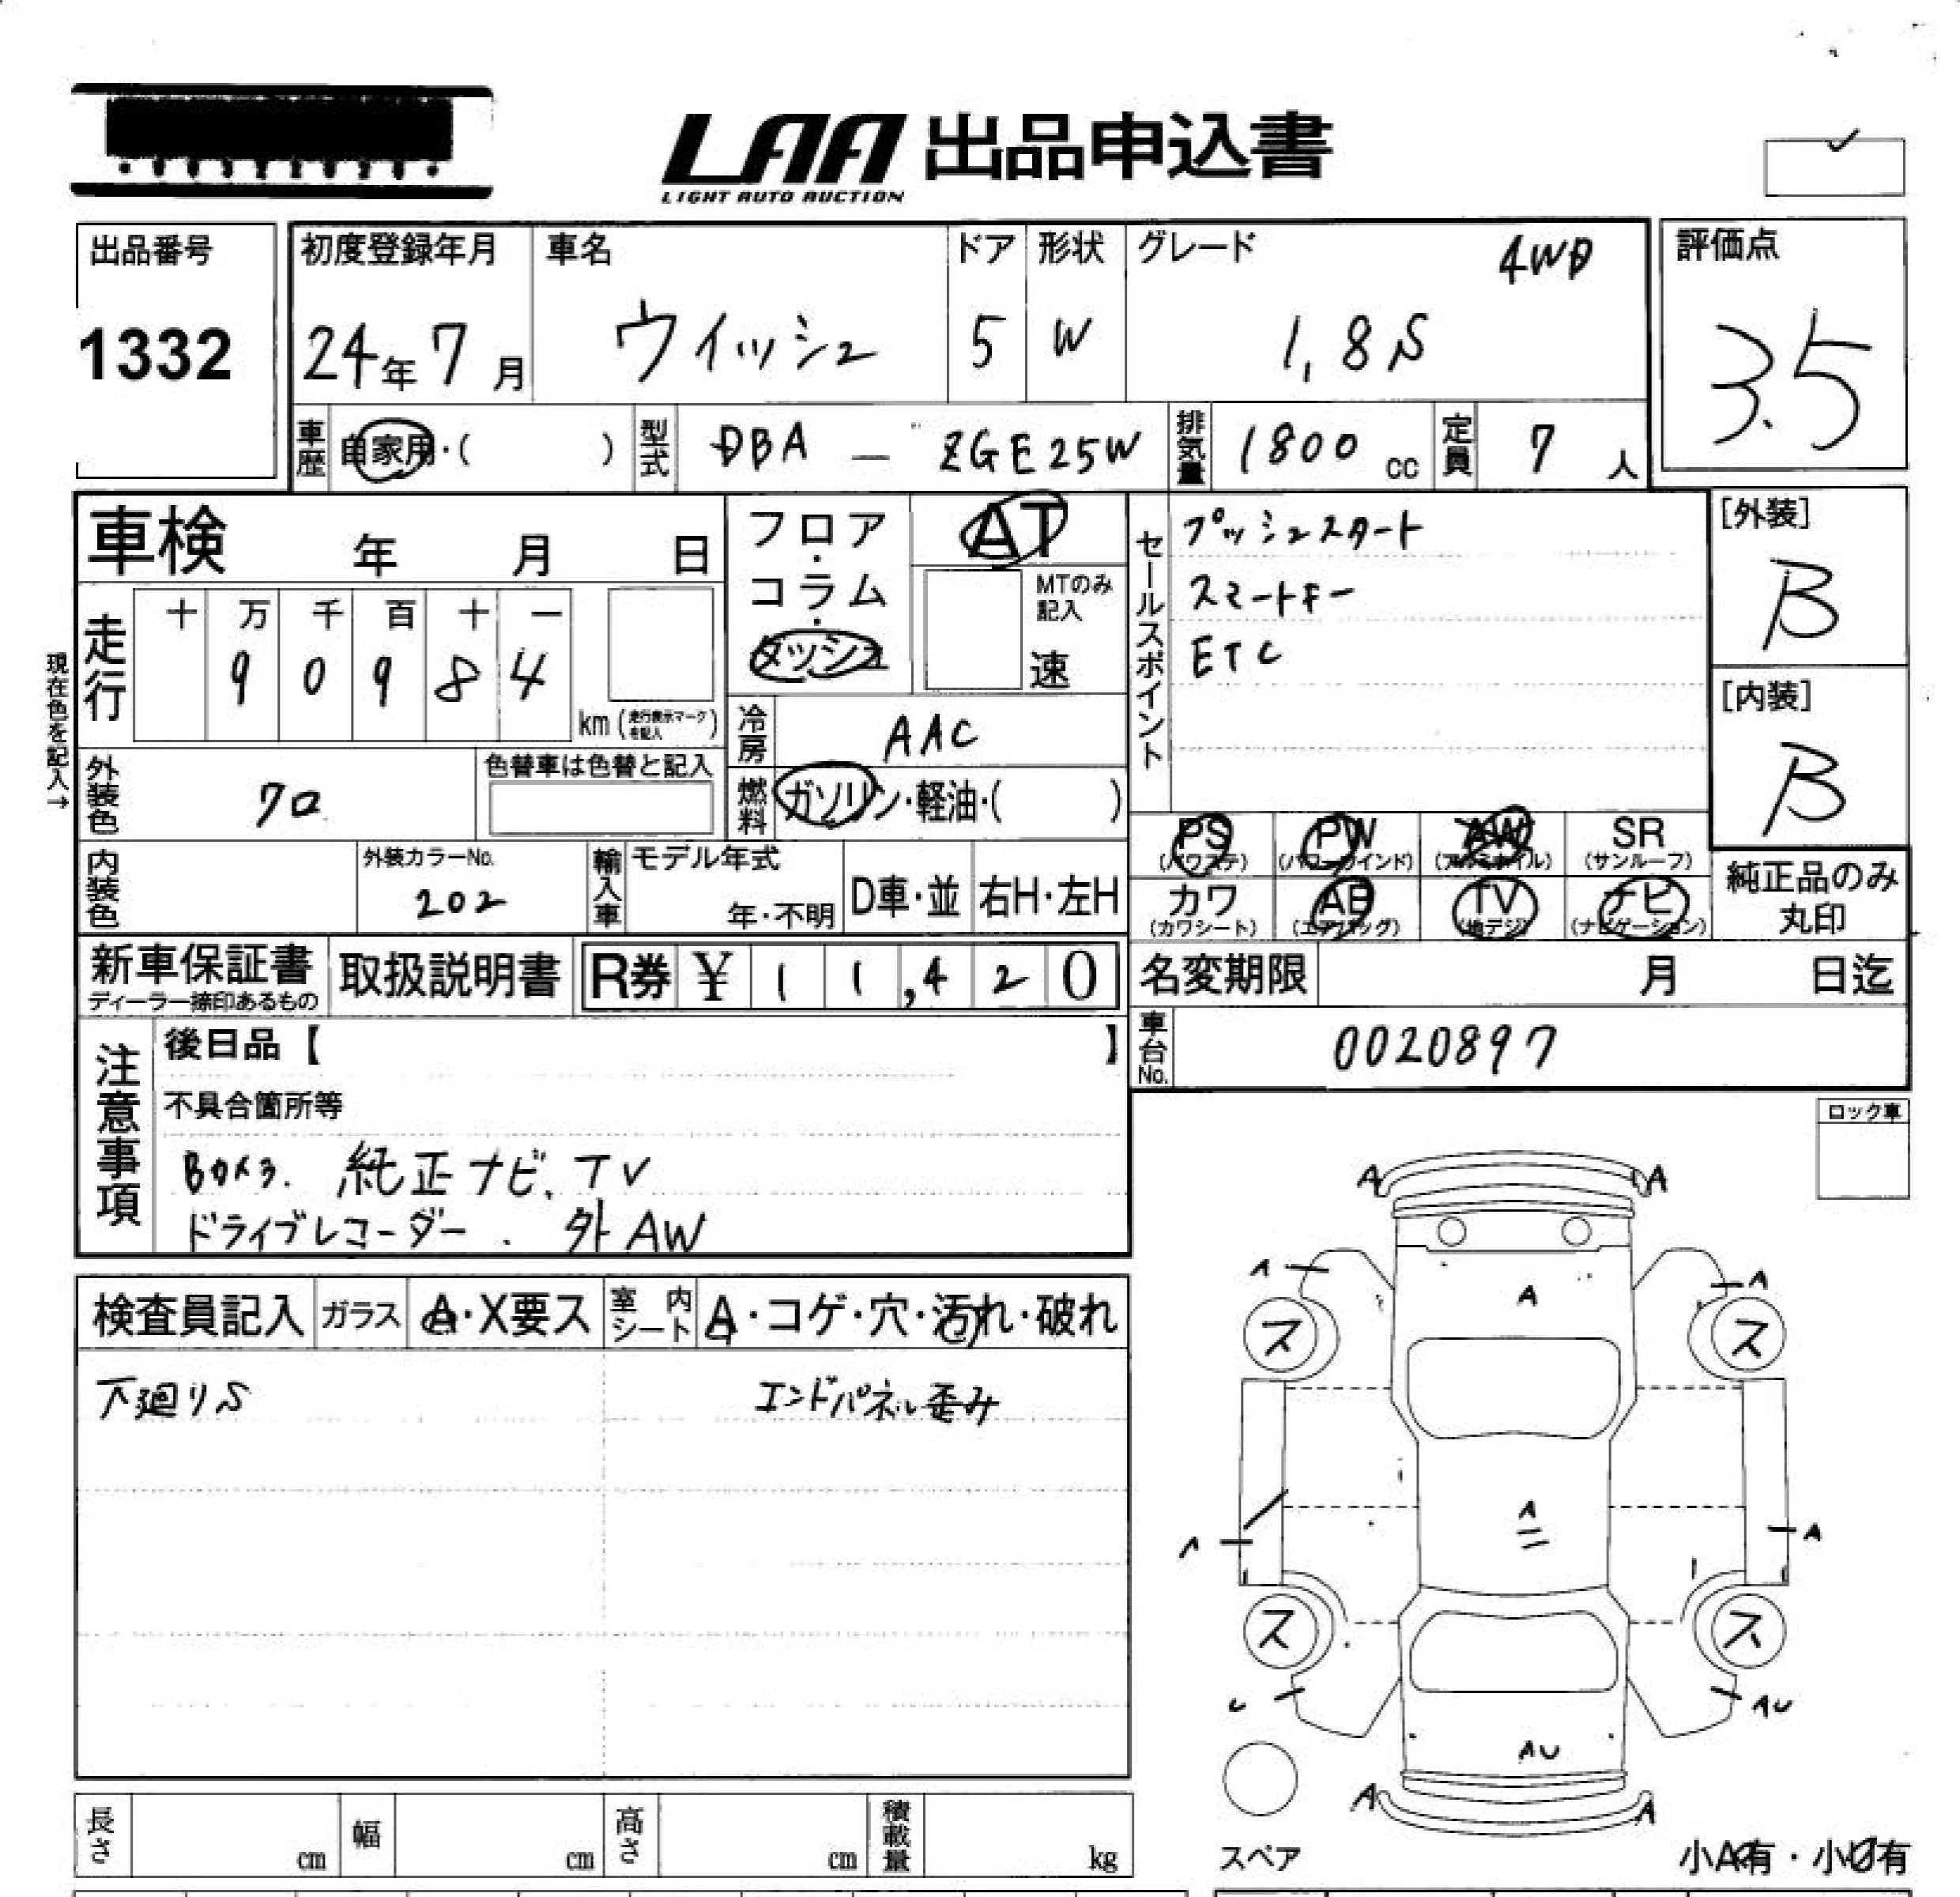 LAA 出品申込書
LIGHT AUTO AUCTION
出品番号
1332
初度登録年月
24年 7月
車名
ウィッシュ
ドア
5
形状
W
グレード
4WD
1.8S
評価点
3.5
車歴
自家用・( )
型式
DBA — ZGE25W
排気量
1800 cc
定員
7 人
車検 年 月 日
フロア・コラム・ダッシュ
AT
MTのみ記入
速
セールスポイント
プッシュスタート
スマートキー
ETC
[外装]
B
[内装]
B
現在色を記入→
走行
十 万 千 百 十 一
9 0 9 8 4
km (走行表示マークを記入)
冷房
AAC
外装色
クロ
色替車は色替と記入
燃料
ガソリン・軽油・( )
PS (パワステ)
PW (パワーウインド)
AW (アルミホイル)
SR (サンルーフ)
カワ (カワシート)
AB (エアバッグ)
TV (地デジ)
ナビ (ナビゲーション)
純正品のみ丸印
内装色
外装カラーNo.
202
輸入車
モデル年式
年・不明
D車・並
右H・左H
新車保証書
ディーラー締印あるもの
取扱説明書
R券 ¥ 11,420
名変期限 月 日迄
車台No.
0020897
注意事項
後日品【 】
不具合箇所等
Bカメラ. 純正ナビ、TV
ドライブレコーダー . 外AW
ロック車
検査員記入
ガラス
A・X要ス
室内シート
A・コゲ・穴・汚れ・破れ
下廻りS
エンドパネル歪み
A A
A A A
ス ス
A A A
ス ス
U AU
AU
A A
スペア
小A有・小U有
長さ cm
幅 cm
高さ cm
積載量 kg